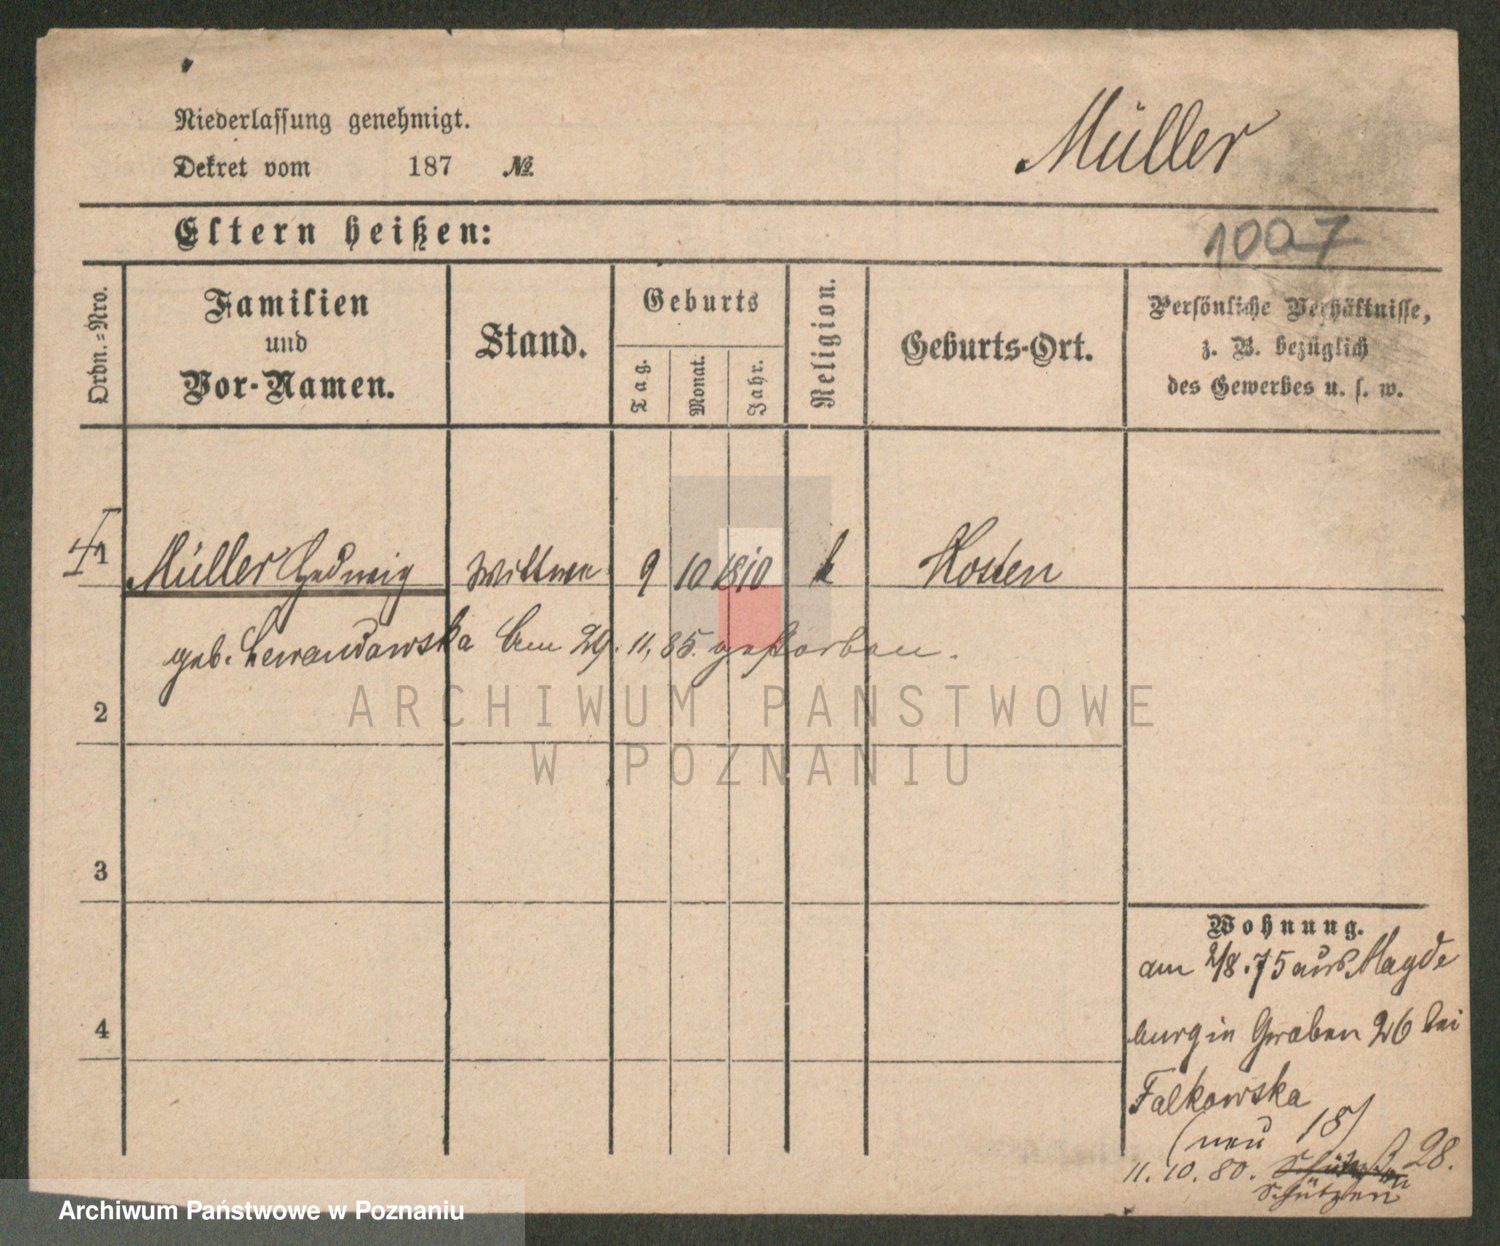 Niederlassung genehmigt.
Müller
Dekret vom 187 №
Eltern heißen:
1007
Ordn.-Nro.
Familien
und
Vor-Namen.
Stand.
Geburts
Tag.
Monat.
Jahr.
Religion.
Geburts-Ort.
Persönliche Verhältnisse,
z. B. bezüglich
des Gewerbes u. s. w.
1 Müller Hedwig Wittwe 9 10 1810 k Kosten
geb. Lewandowska Am 29. 11. 85. gestorben.
2
ARCHIWUM PAŃSTWOWE
W POZNANIU
3
Wohnung.
am 2/8.75 aus Magde
4
burg in Graben 26 bei
Falkowska
(neu 18)
11. 10. 80. 28.
Schützen
Archiwum Państwowe w Poznaniu